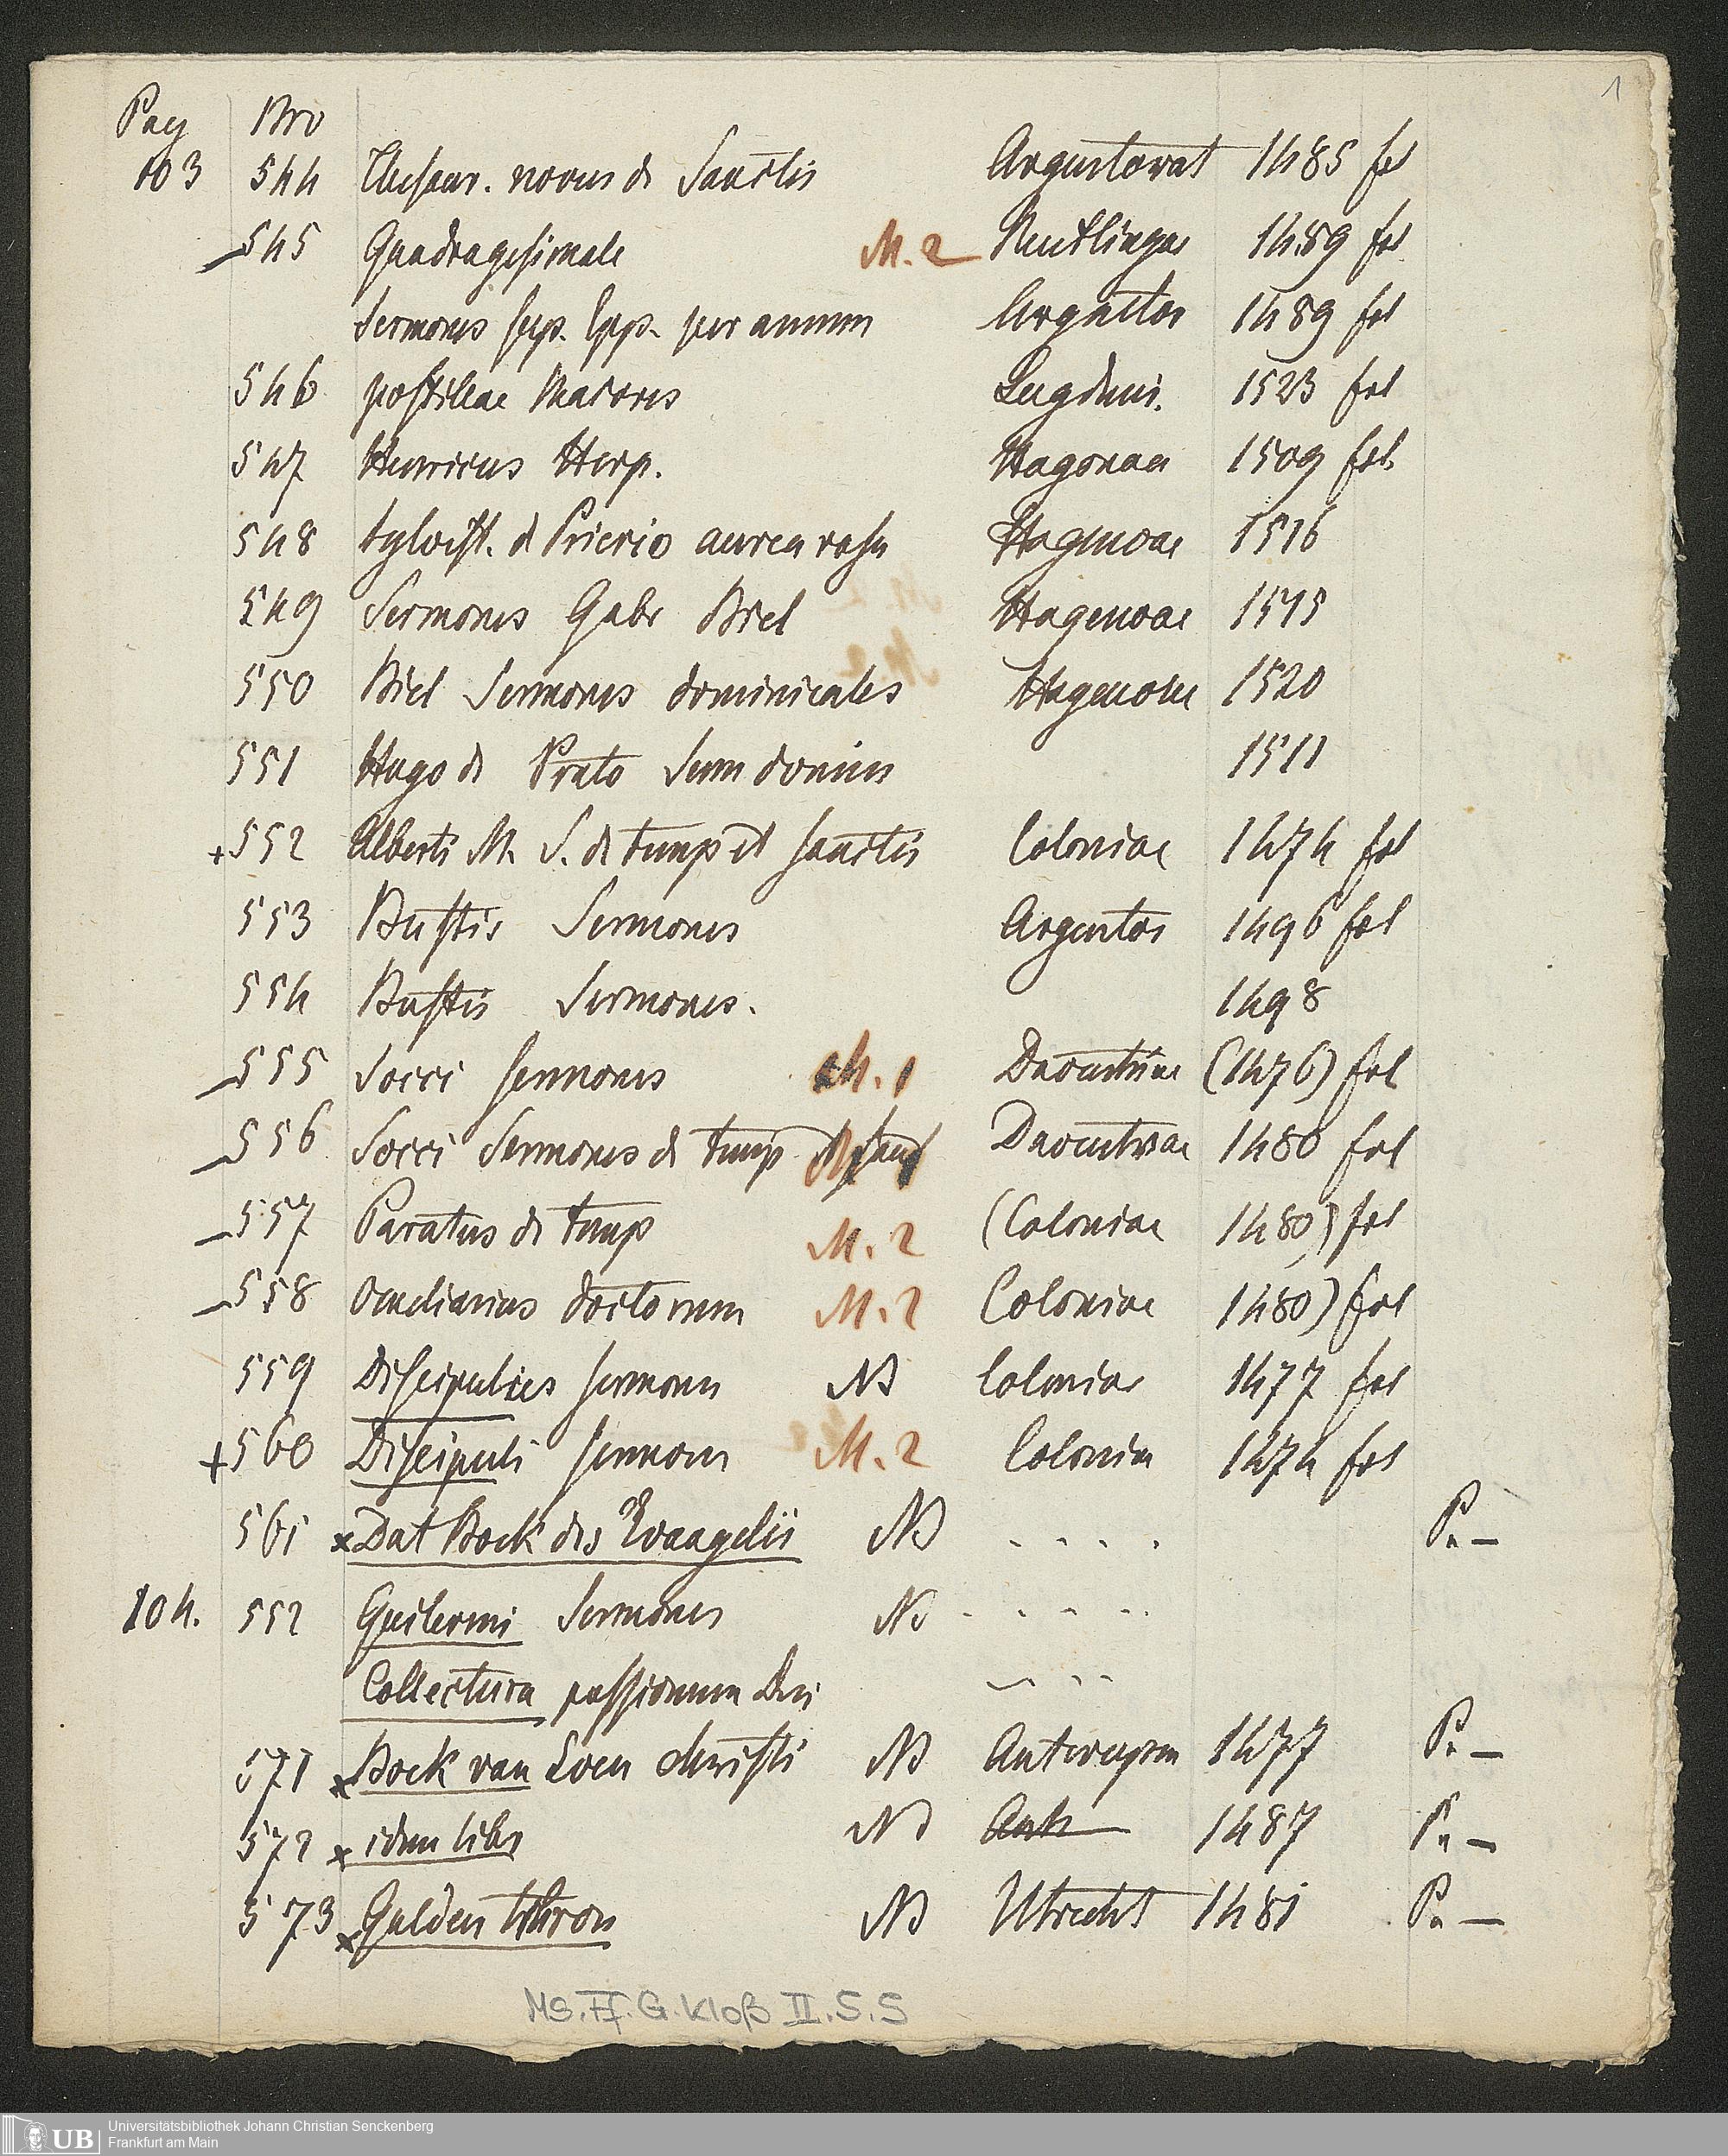 1
Pag Nro
103 544 Thesaur. novus de Sanctis Argentorat 1485 fol
545 Quadragesimale M. 2 Reutlingae 1489 fol
Sermones sup. Epp. per annum Argentor 1489 fol
546 postillae Maiores Lugduni. 1523 fol
547 Henricus Herp. Hagonaa 1509 fol.
548 Sylvest. d Prierio aurea rosa Hagenoae 1516
549 Sermones Gabr Biel Hagenoae 1515
550 Biel Sermones dominicales Hagenoae 1520
551 Hugo de Prato Serm domin 1511
+552 Alberti M. S. de temp et sanctis Coloniae 1474 fol
553 Bustis Sermones Argentor 1496 fol
554 Bustis Sermones. 1498
555 Socci sermones M. 1 Daventriae (1476) fol
556 Socci Sermones de temp Daventriae 1480 fol
557 Paratus de temp M. 2 (Coloniae 1480) fol
558 doctorum M. 2 Coloniae 1480) fol
559 Discipulies sermones NB Coloniae 1477 fol
+560 Discipuli sermones M. 2 Coloniae 1474 fol
561 x Dat Boek des Evangelii NB . . . . P. —
104. 552 Guilermi Sermones NB . . . .
Collectura passionum Dni
571 x Boek van Leven Christi NB Antwerpen 1477 P. —
572 x idem liber NB Ant 1487 P. —
573 x Gulden thron NB Utrecht 1481 P. —
Ms. Ff. G. Kloß II. S. S
UB Universitätsbibliothek Johann Christian Senckenberg
Frankfurt am Main